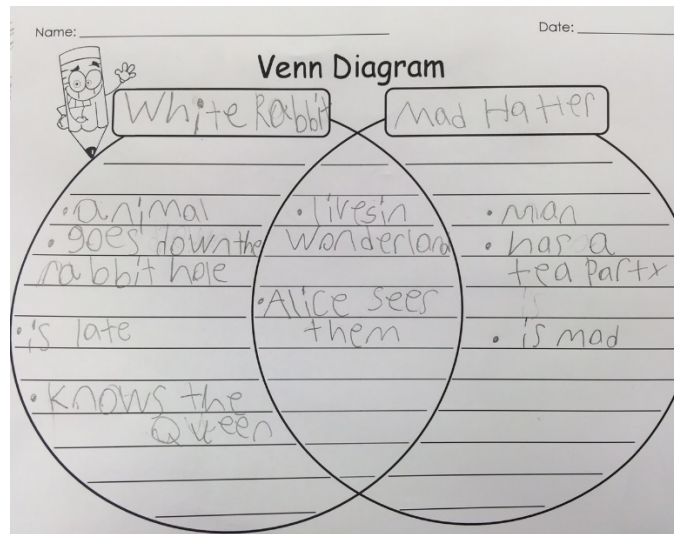 Name:
Date:
Venn Diagram
White Rabbit
Mad Hatter
• animal
• goes down the
rabbit hole
• is late
• Knows the
Queen
• lives in
Wonderland
• Alice sees
them
• man
• has a
tea Party
• is mad